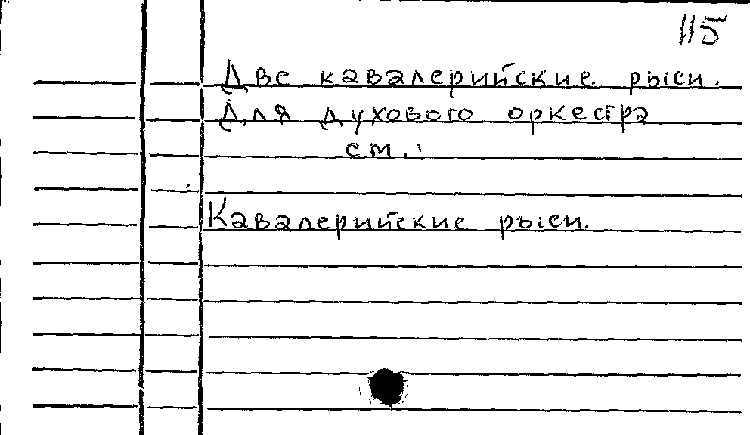 115
Две кавалерийские рыси.
Для духового оркестра
см.:
Кавалерийские рыси.